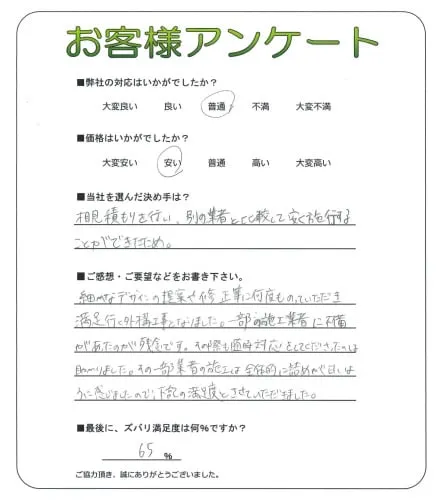 お客様アンケート
■弊社の対応はいかがでしたか？
大変良い 良い 普通 不満 大変不満
■価格はいかがでしたか？
大変安い 安い 普通 高い 大変高い
■当社を選んだ決め手は？
相見積もりを行い、別の業者と比較して安く施行する
ことができたため。
■ご感想・ご要望などをお書き下さい。
細かなデザインの提案や修正等に何度ものっていただき
満足行く外構工事となりました。一部の施工業者に不備
があったのが残念です。その際も随時対応をしてくださったのは
助かりました。その一部業者の施工は全体的に詰めが甘いよ
うに感じましたので、下記の満足度とさせていただきました。
■最後に、ズバリ満足度は何％ですか？
65 %
ご協力頂き、誠にありがとうございました。